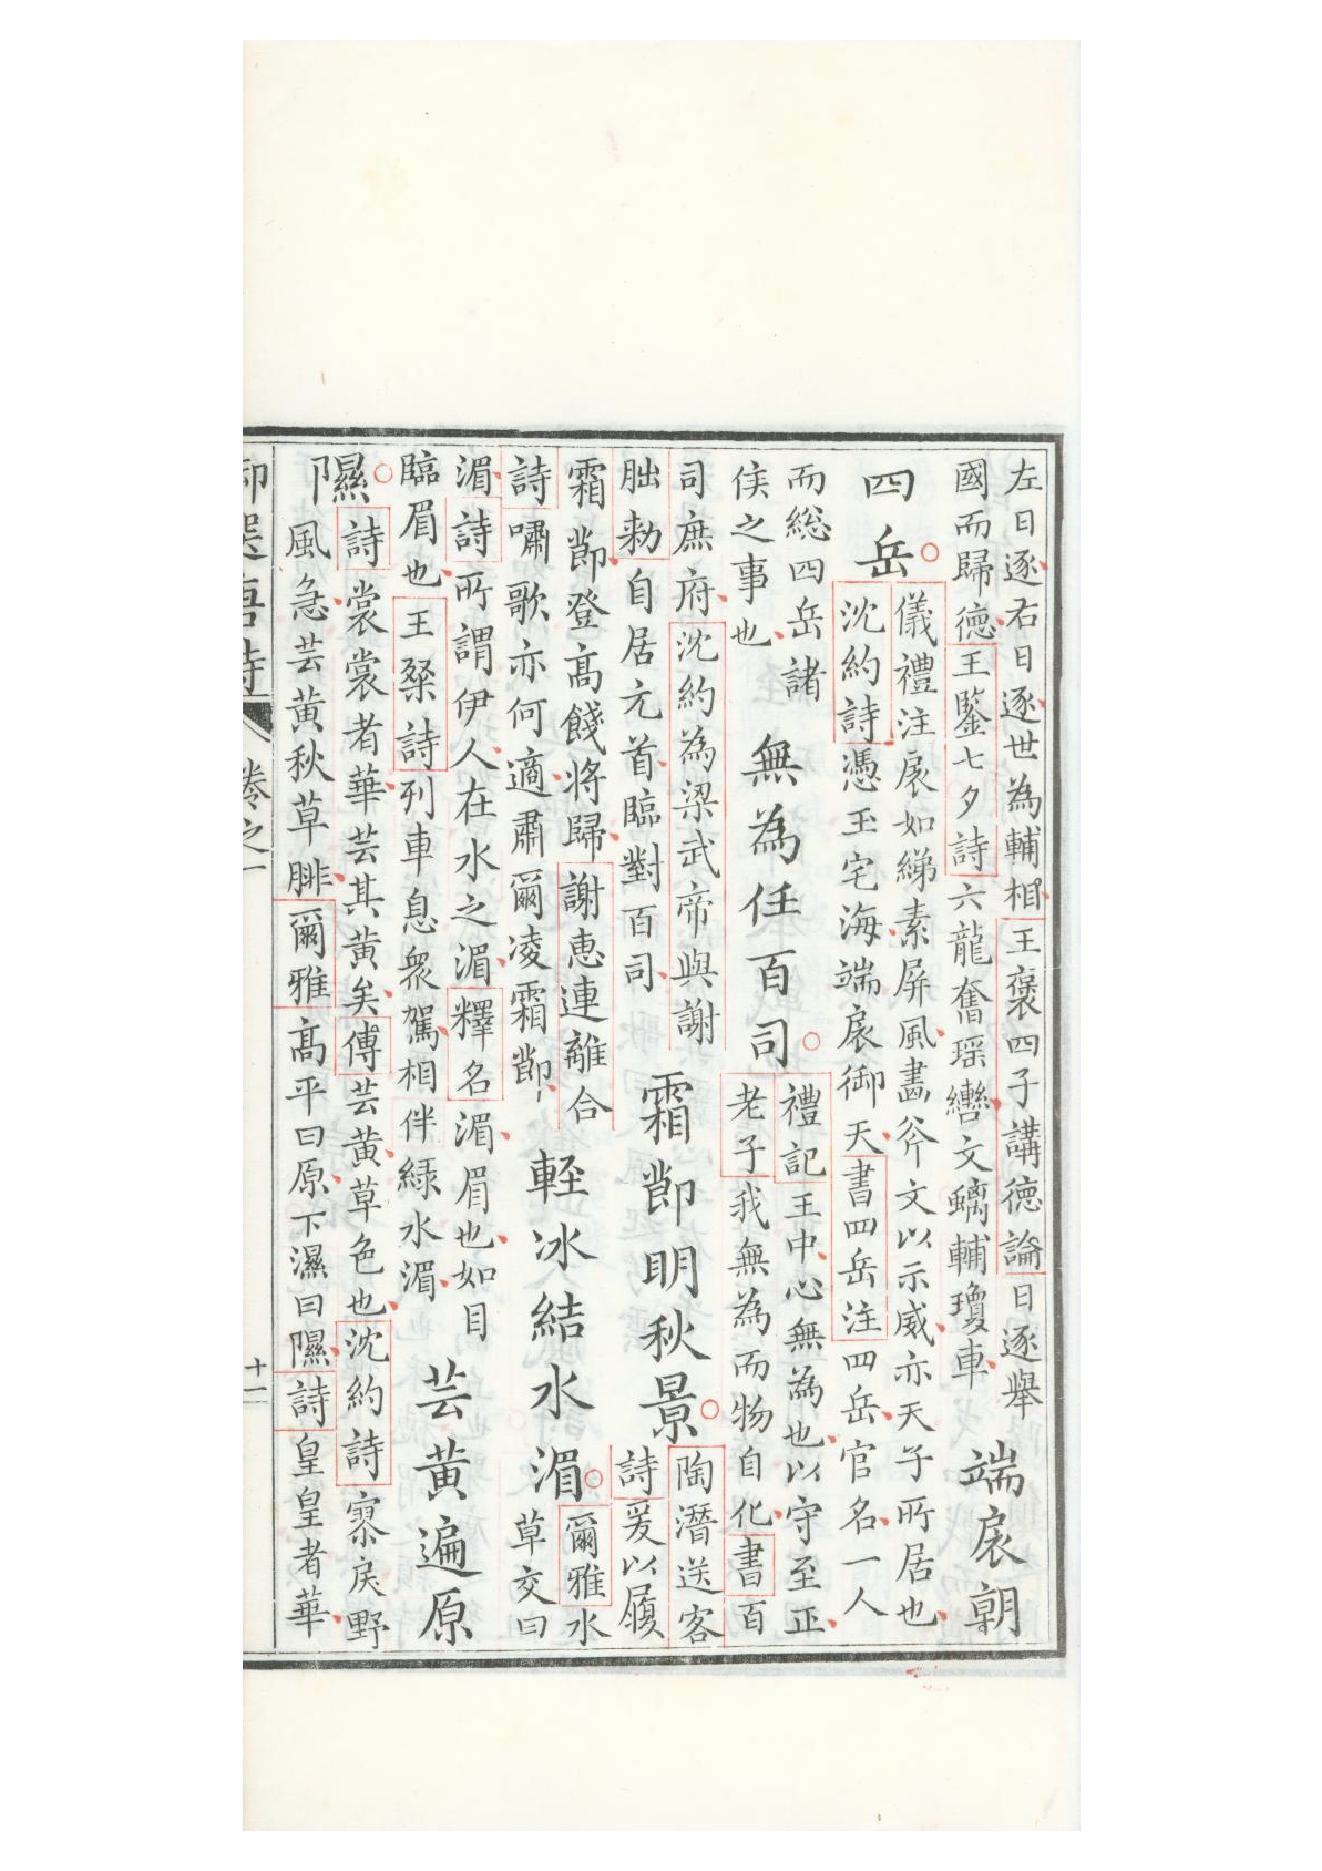 左日逐右日逐世為輔相王褒四子講德論日逐舉
國而歸德王鑒七夕詩六龍奮瑶轡文螭輔瓊車
端扆朝
四岳
儀禮注扆如綈素屏風畫斧文以示威亦天子所居也
沈約詩憑玉宅海端扆御天書四岳注四岳官名一人
而總四岳諸
侯之事也
無為任百司
禮記王中心無為也以守至正
老子我無為而物自化書百
司庶府沈約為梁武帝與謝
朏勑自居元首臨對百司
霜節明秋景
陶潛送客
詩爰以履
霜節登高餞將歸謝惠連離合
詩嘯歌亦何適肅爾凌霜節
輕冰結水湄
爾雅水
草交曰
湄詩所謂伊人在水之湄釋名湄眉也如目
臨眉也王粲詩列車息衆駕相伴緑水湄
芸黃遍原
隰
詩裳裳者華芸其黃矣傅芸黃草色也沈約詩寥戾野
風急芸黃秋草腓爾雅高平曰原下濕曰隰詩皇皇者華
卷之一
十一